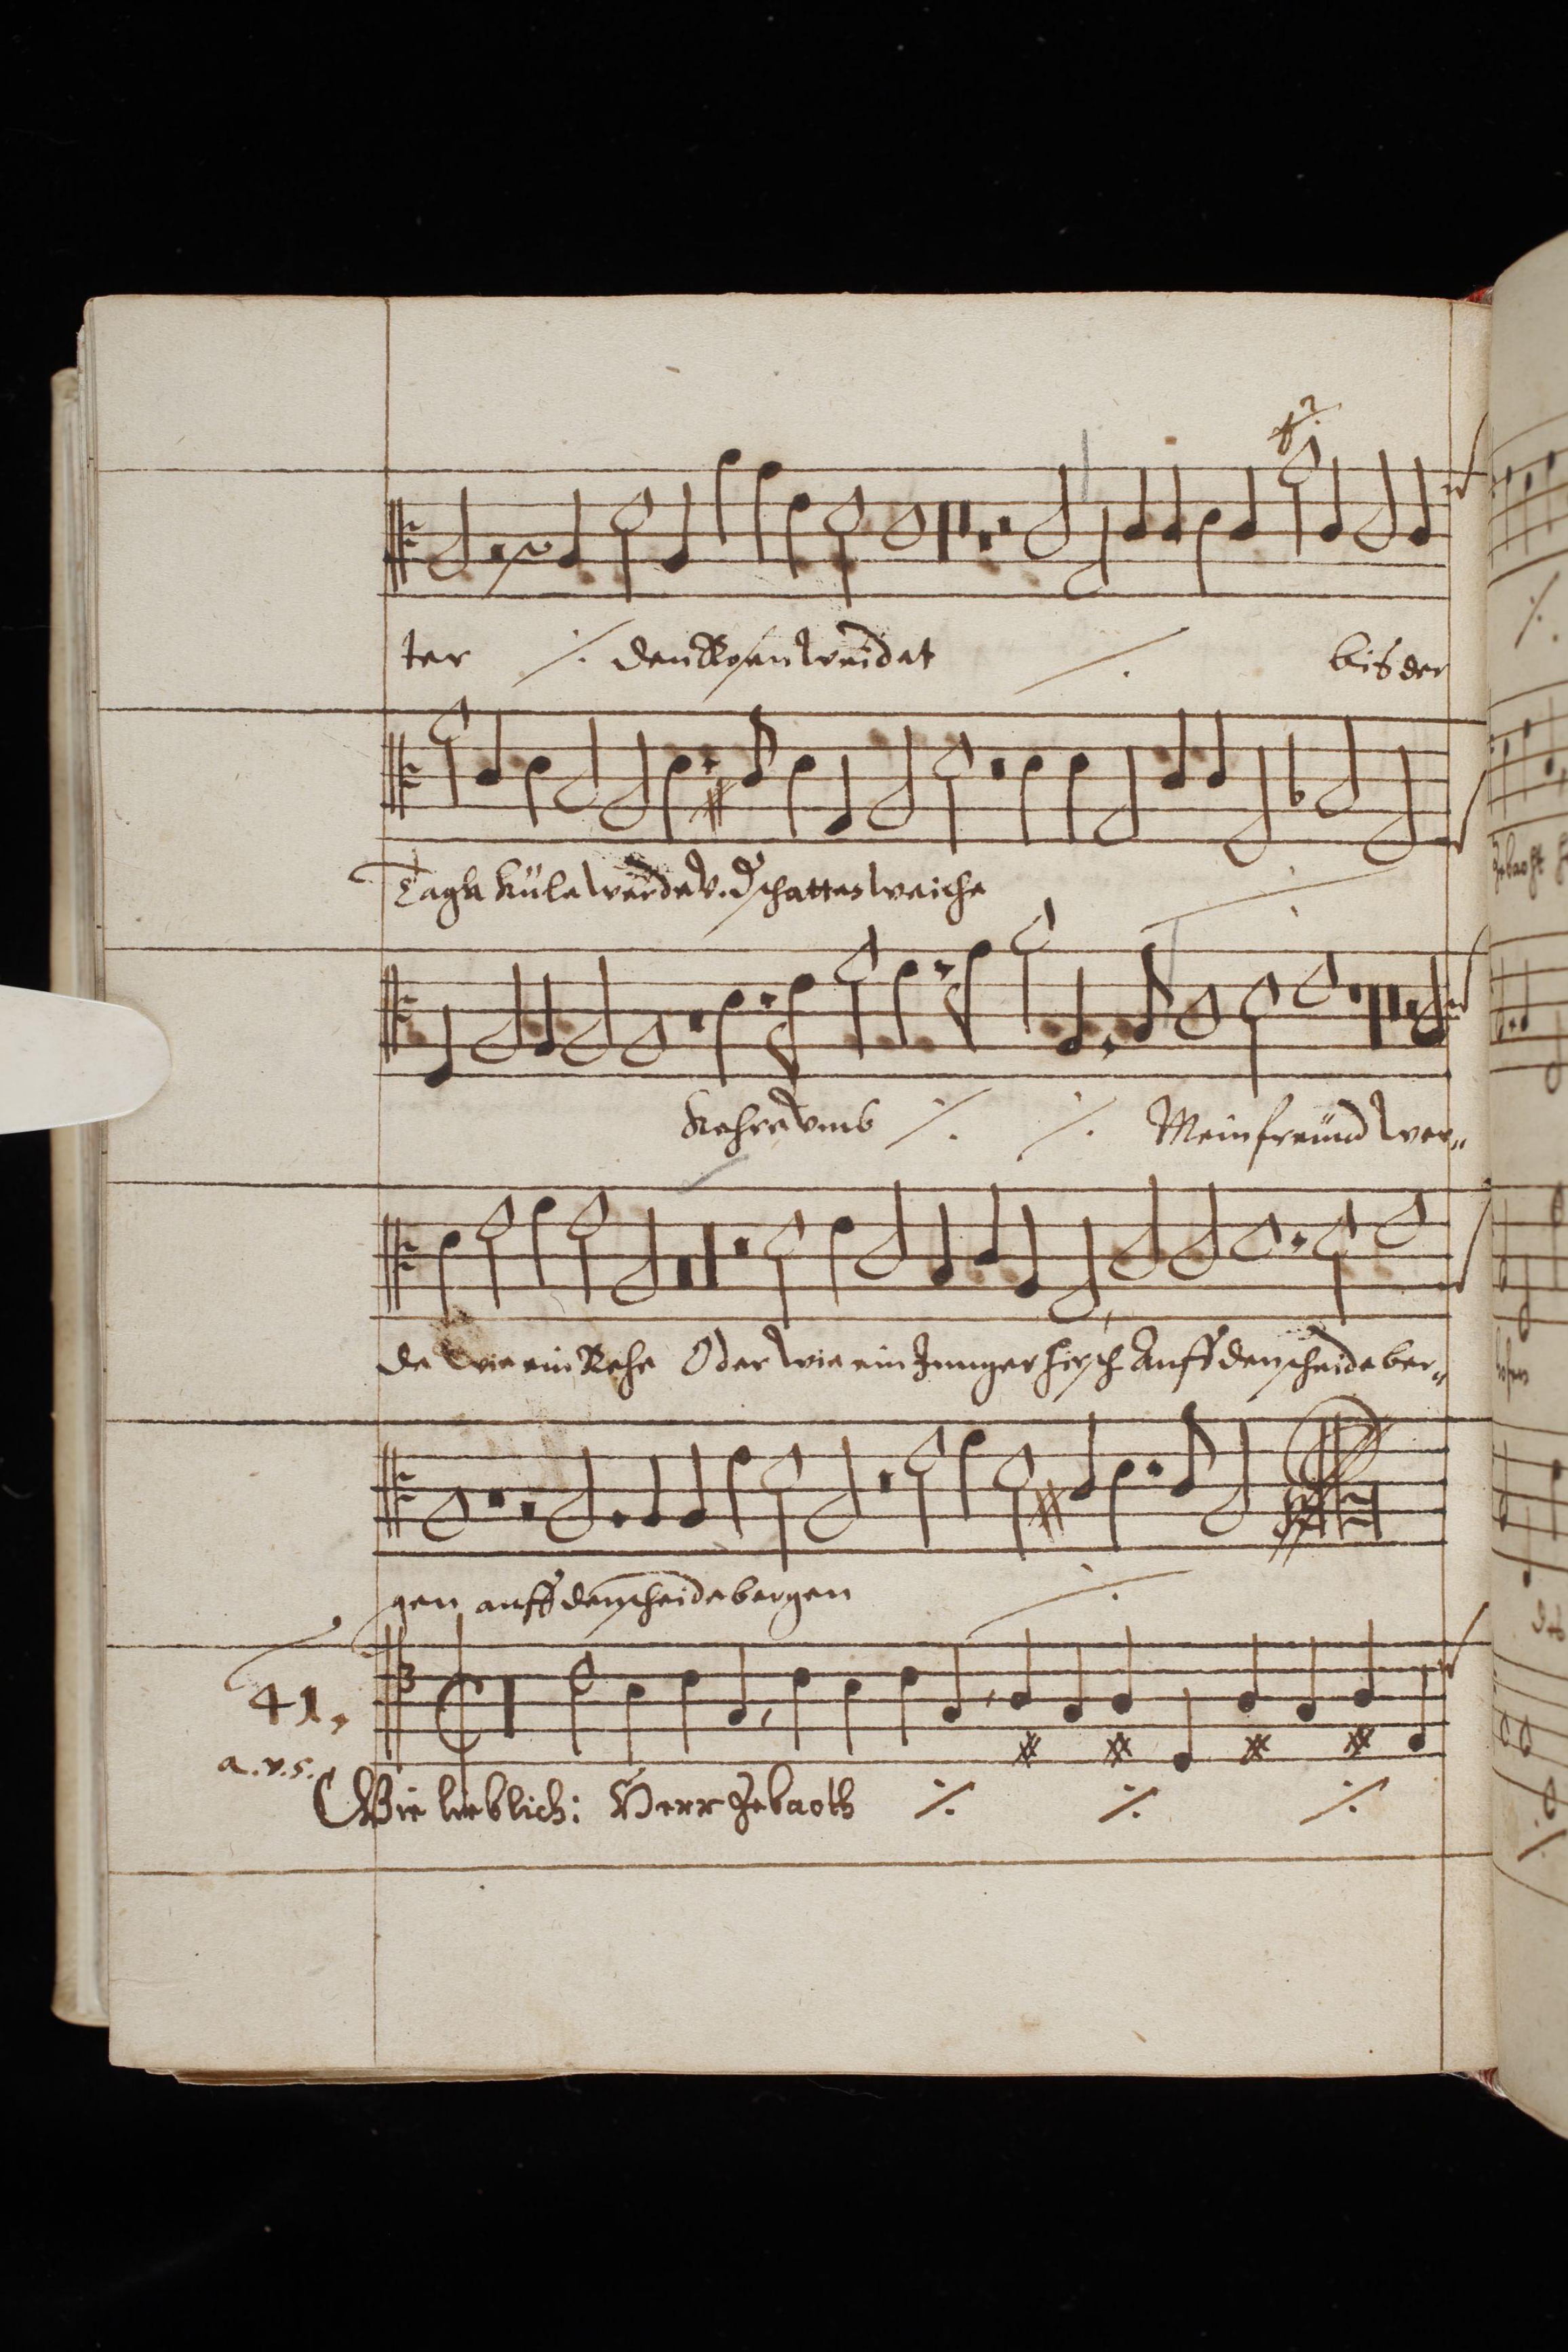 ter ⁒ den Rosen weidet ⁒ bis der
Tagk küle werde v. d schatten weiche ⁒
Kehre vmb ⁒ ⁒ Mein freünd wer„
de wie ein Rehe Oder wie ein Junger hirsch Auff den scheide ber„
gen auff den scheidebergen ⁒
41.
a.v.5.
Wie lieblich: Herr Zebaoth ⁒ ⁒ ⁒